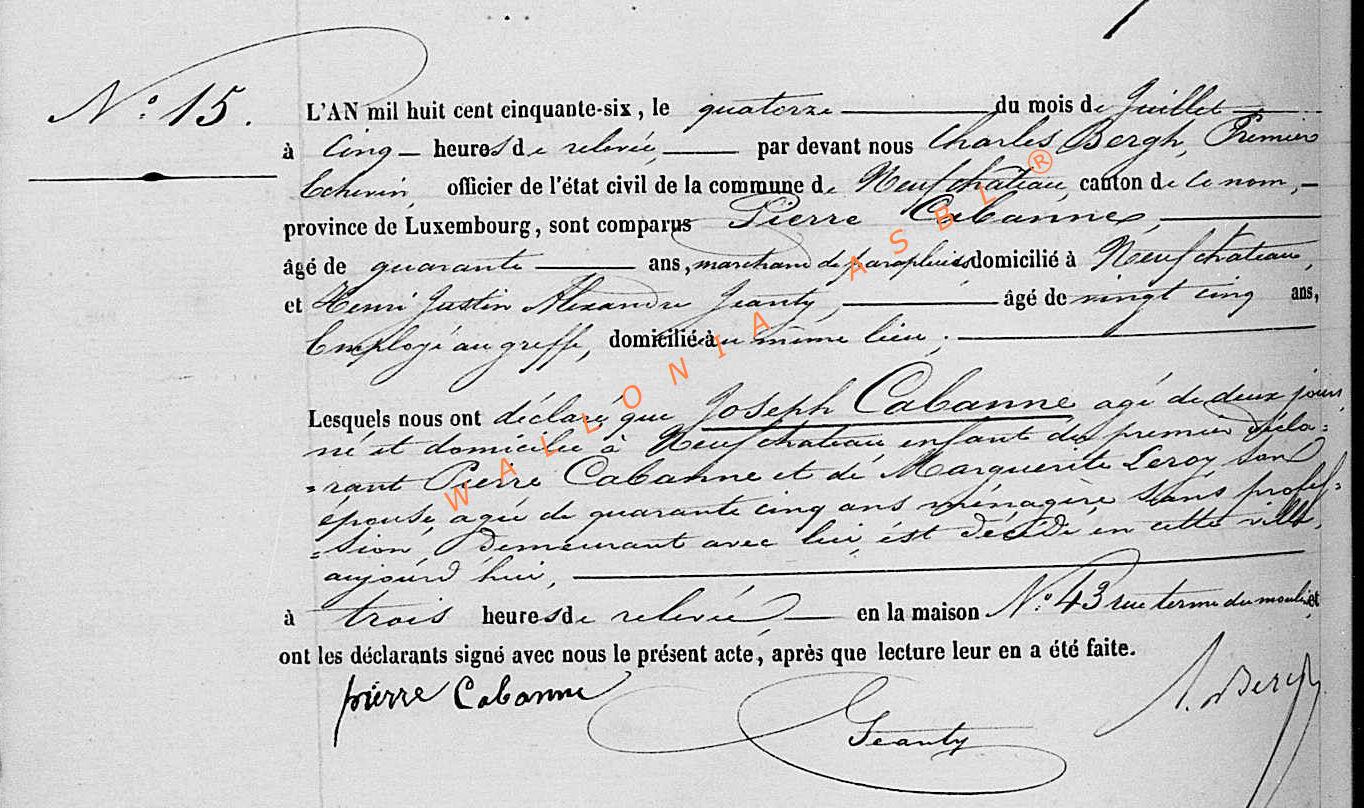 N.° 15.
L'AN mil huit cent cinquante-six, le quatorze du mois de Juillet
à Cinq heures de relevée, par devant nous Charles Bergh, Premier
Echevin, officier de l'état civil de la commune de Neufchateau, canton de ce nom,
province de Luxembourg, sont comparus Pierre Cabanne,
âgé de quarante ans, marchand de parapluies domicilié à Neufchateau,
et Henri Justin Alexandre Jeanty, âgé de vingt cinq ans,
Employé au greffe, domicilié au même lieu ;
Lesquels nous ont déclaré que Joseph Cabanne agé de deux jours,
né et domicilié à Neufchateau enfant du premier décla=
=rant Pierre Cabanne et de Marguerite Leroy son
épouse, agée de quarante cinq ans ménagère sans profes=
=sion, demeurant avec lui, est décédé en cette ville,
aujourd'hui,
à trois heures de relevée en la maison N.° 43 rue terme du moulin, et
ont les déclarants signé avec nous le présent acte, après que lecture leur en a été faite.
pierre Cabanne
Geanty
Bergh
WALLONIA ASBL ®